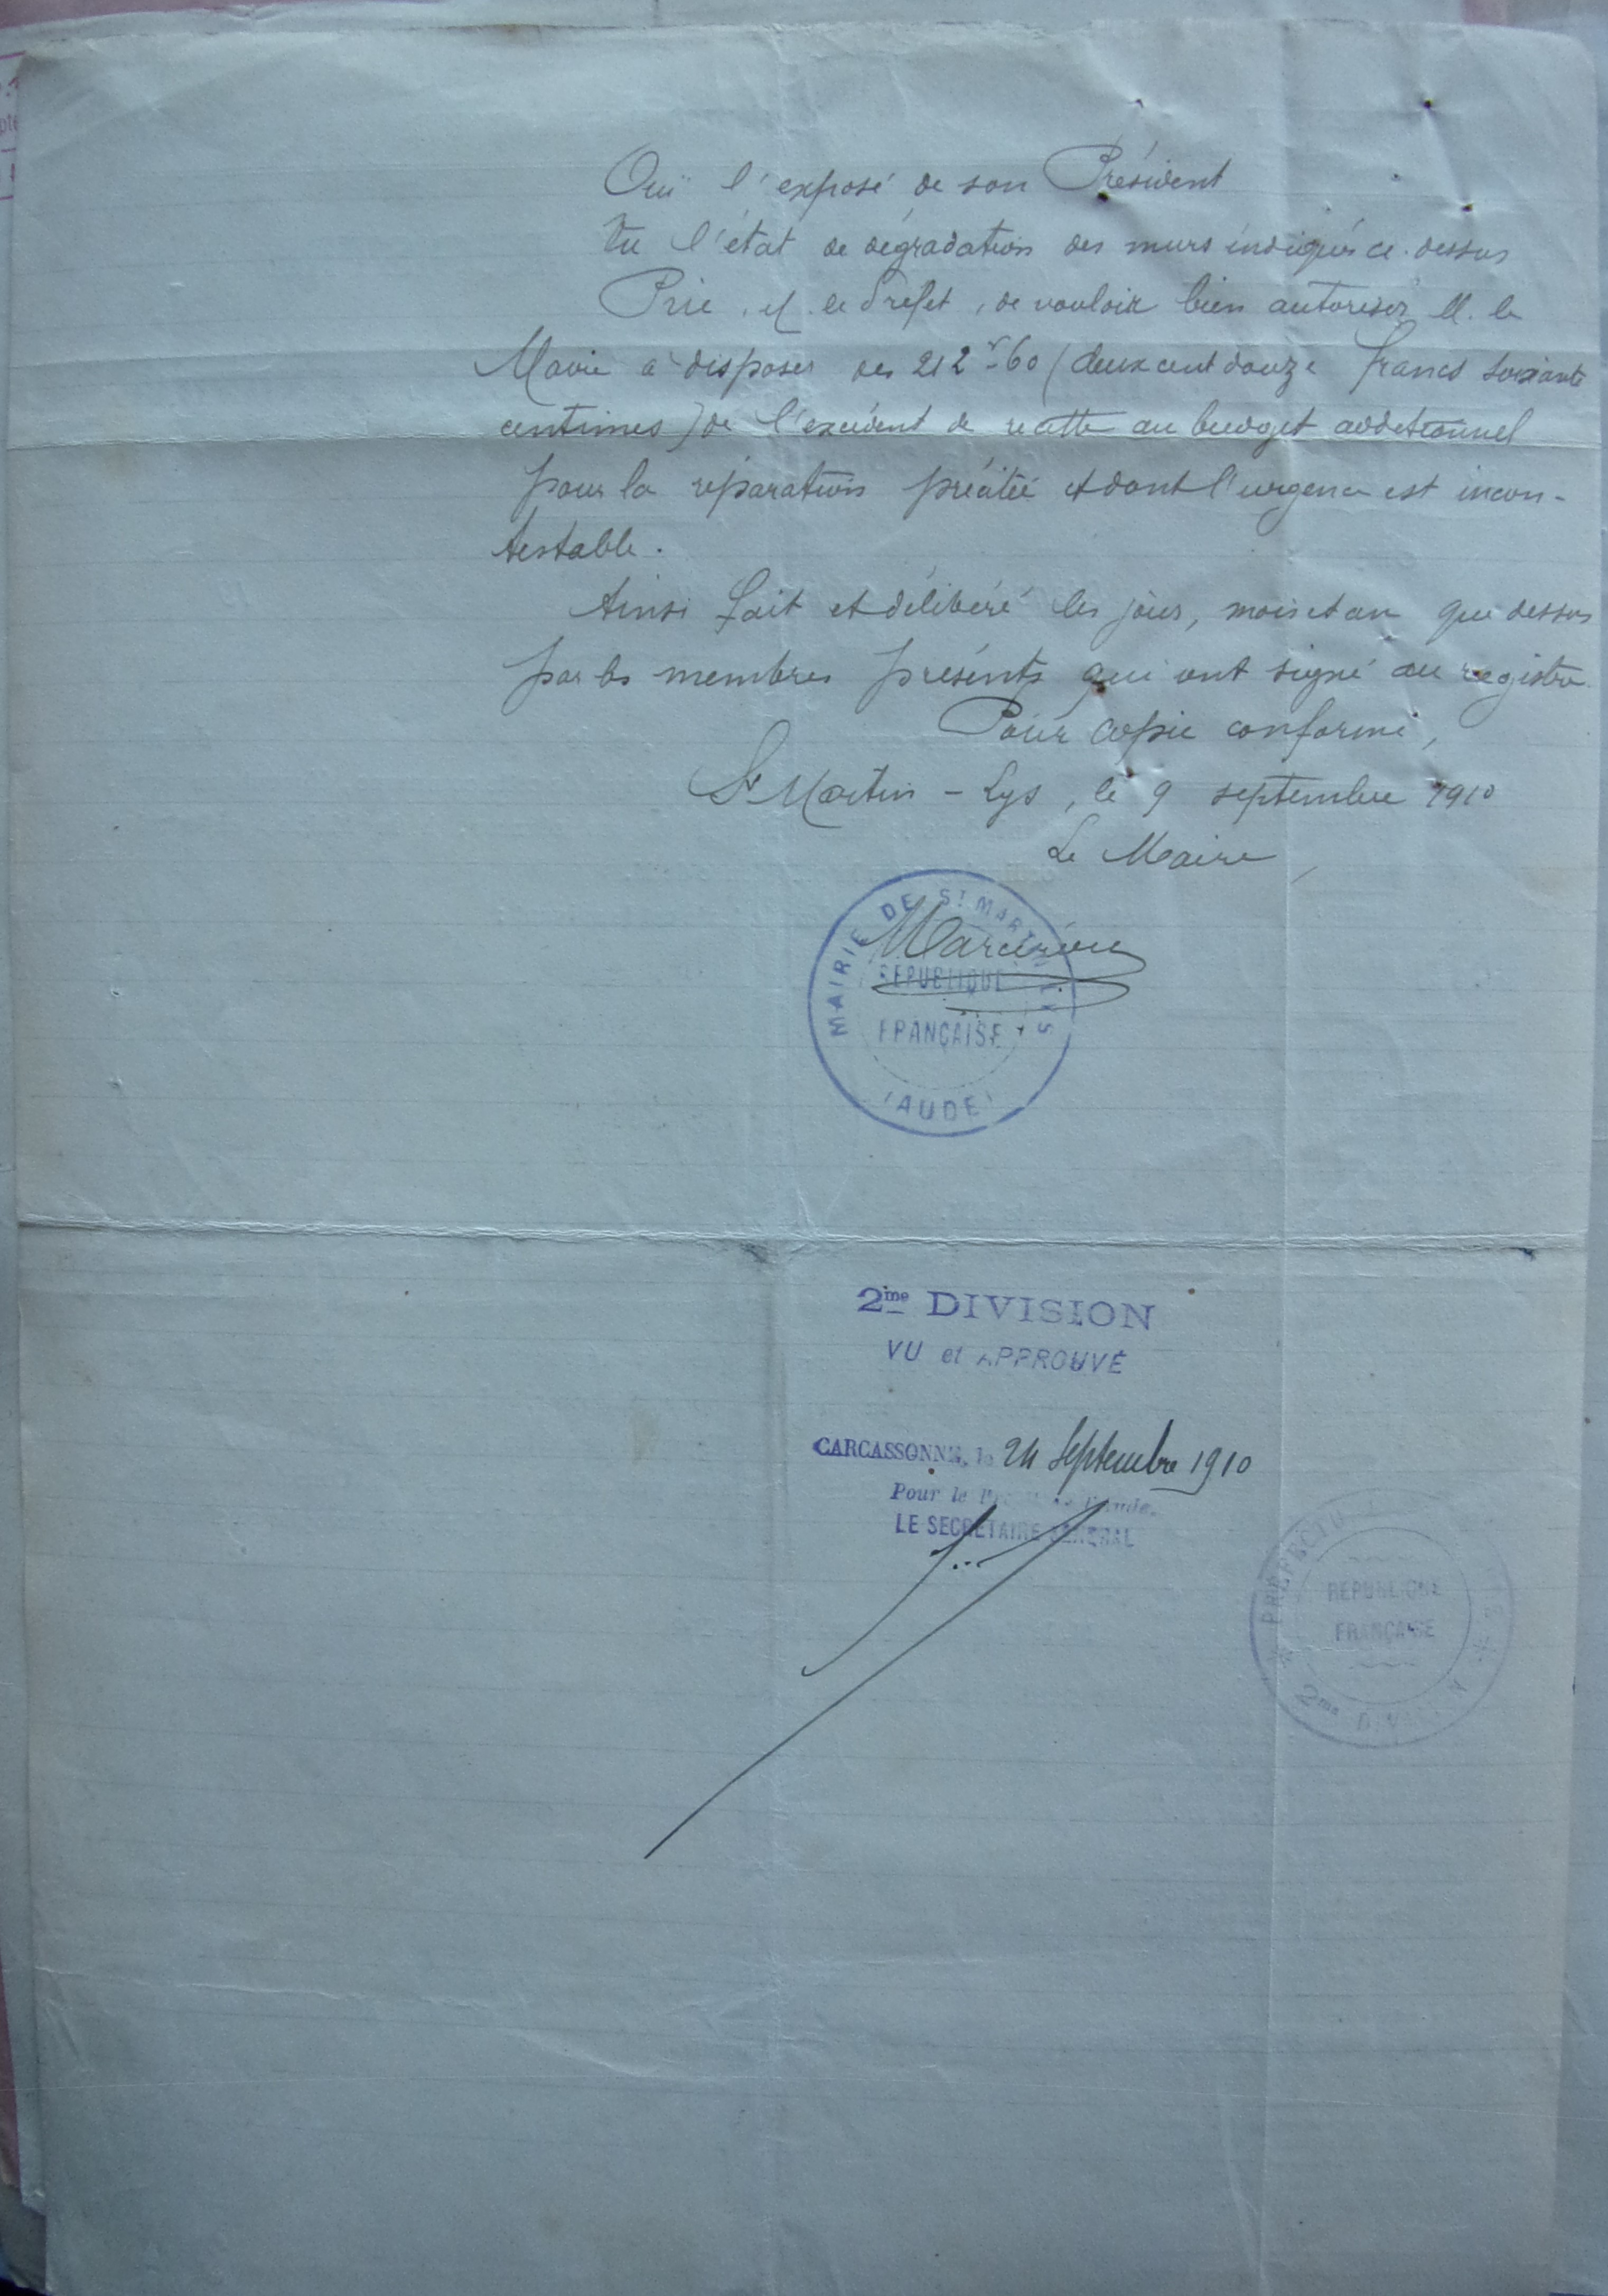 Ouï l'exposé de son Président
Vu l'état de dégradation des murs indiqués ci-dessus
Prie, M. le Préfet, de vouloir bien autoriser M. le
Maire à disposer des 212 f 60 (deux cent douze francs soixante
centimes) de l'excédent de recette au budget additionnel
pour la réparation précitée et dont l'urgence est incon-
testable.
Ainsi fait et délibéré les jour, mois et an que dessus
par les membres présents qui ont signé au registre.
Pour copie conforme,
St Martin - Lys, le 9 septembre 1910
Le Maire,
MAIRIE DE St MARTIN LYS
RÉPUBLIQUE
FRANÇAISE
(AUDE)
2me DIVISION
VU et APPROUVÉ
CARCASSONNE, le 24 Septembre 1910
Pour le Préfet de l'Aude.
LE SECRÉTAIRE GÉNÉRAL
PRÉFECTURE
RÉPUBLIQUE
FRANÇAISE
2me DIVISION